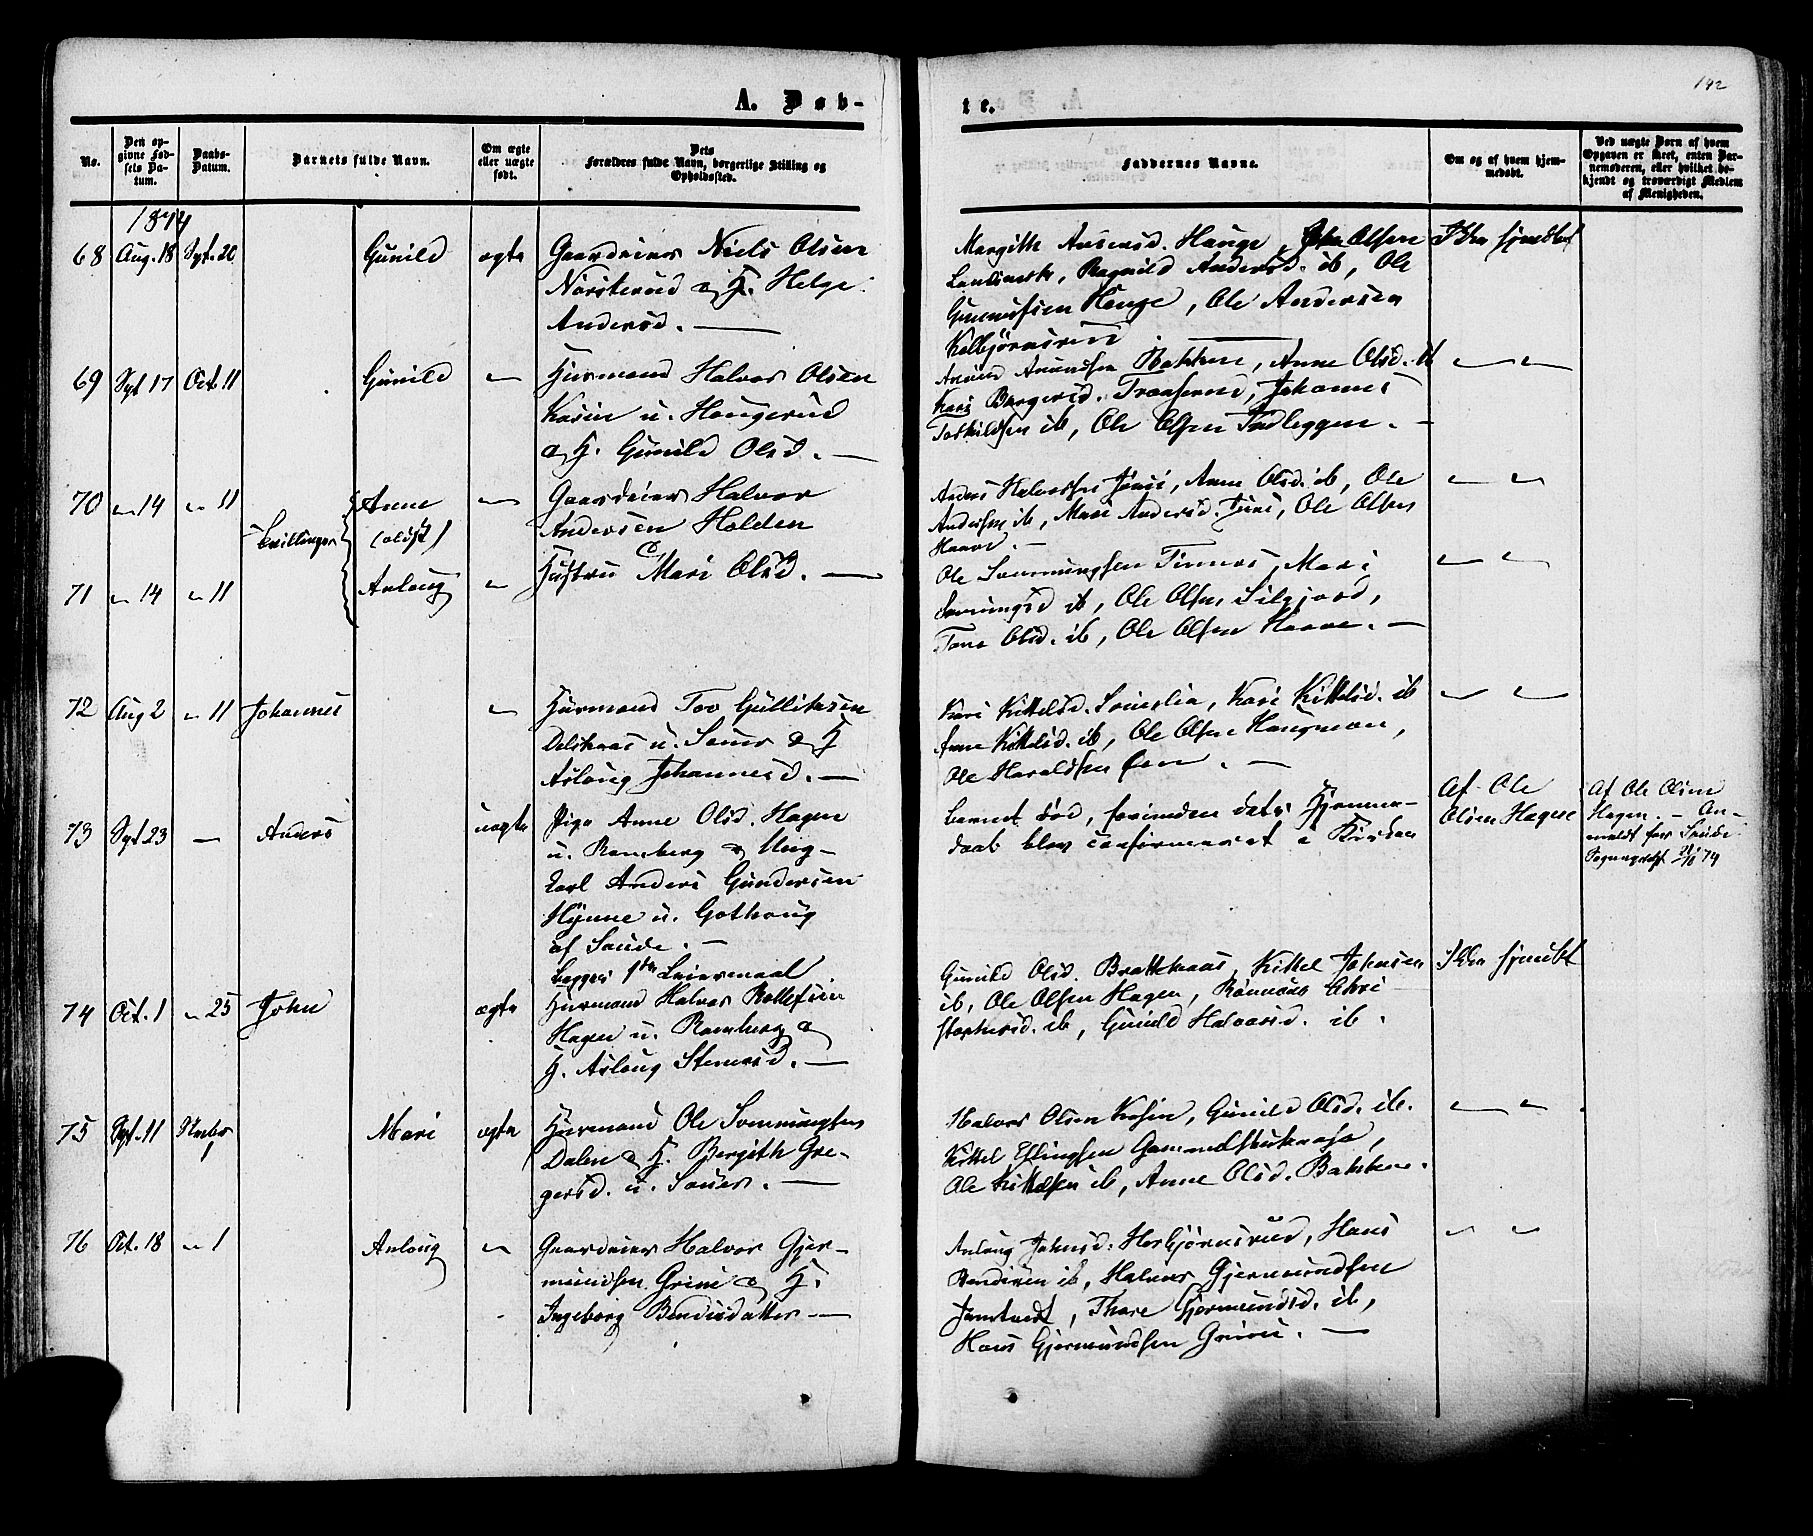 192
A. Døb-
te.
No.
Den op-
givne Fød-
sels Da-
tum.
Daabs-
Datum.
Barnets fulde Navn.
Om ægte
eller uægte
født.
Dets
Forældres fulde Navn, borgerlige Stilling og
Opholdssted.
Faddernes Navne.
Om og af hvem hjem-
medøbt.
Ved uægte Børn af hvem
Opgaven er skeet, enten Bar-
nemoderen, eller hvilket be-
kjendt og troværdigt Medlem
af Menigheden.
1874
68 Aug. 18 Spt. 20 Gunild ægte Gaardeier Niels Olsen
Norsterud og H. Helge
Andersd. —
Margith Andersd. Hauge, John Olsen
Landsverk, Ragnild Andersd. ib, Ole
Gunnufsen Hauge, Ole Andersen
Kolbjørnsrud
Ikke hjemdøbt
69 Spt 17 Oct. 11 Gunild " Huusmand Halvor Olsen
Kasin u. Haugerud
og H. Gunild Olsd. —
Amund Amundsen Bakken, Anne Olsd. ib
Kari Børgersd. Traaserne, Johannes
Torkildsen ib, Ole Olsen Tadleggen. —
" "
70 " 14 " 11 Tvillinger Anne
(ældst) " Gaardeier Halvor
Andersen Holden
Hustru Mari Olsd. —
Anders Halvorsen Juvi, Anne Olsd. ib, Ole
Andersen ib, Mari Andersd. Juvi, Ole Olsen
Haave. —
" "
71 " 14 " 11 Aslaug "
Ole Sommungsen Tinnes, Mari
Sommungsd ib, Ole Olsen Siljord,
Tone Olsd. ib, Ole Olsen Haave. —
" "
72 Aug 2 " 11 Johannes " Huusmand Tov Gulliksen
u. Sauer og H
Aslaug Johannesd. —
Kari Kittelsd. Kari Kittelsd. ib
Anne Kittelsd. ib, Ole Olsen Haugman,
Ole Haraldsen Øen. —
" "
73 Spt 23 — Anders uægte Pige Anne Olsd. Hagen
u. Ramberg og Ung-
karl Anders Gundersen
Hynne u. Gothaug
af Saude. —
begges 1ste Leiermaal
barnet død, forinden dets Hjemme-
daab blev confirmeret i Kirken
Af Ole
Olsen Hagen
Af Ole Olsen
Hagen. — An-
meldt for Saude
74
74 Oct. 1 " 25 John ægte Huusmand Halvor Rollefsen
Hagen u. Ramberg og
H. Aslaug Stenersd. —
Gunild Olsd. Brattekaas, Kittel Johnsen
ib, Ole Olsen Hagen, Rønnaug Chri-
stophersd. ib, Gunild Halvorsd. ib.
Ikke hjemdøbt
75 Spt. 11 Novbr
1 Mari ægte Huusmand Ole Sommungsen
Dalen og H. Bergith Gre-
gersd. u. Sauer. —
Halvor Olsen Kasin, Gunild Olsd. ib.
Kittel Ellingsen Gammelstukaasa,
Ole Kittelsen ib, Anne Olsd. Bakken.
" "
76 Oct. 18 " 1 Aslaug " Gaardeier Halvor Gjer-
mundsen Grini og H.
Ingeborg Bendixdatter —
Aslaug Johnsd. Herbjørnsrud, Hans
Bendixen ib, Halvor Gjermundsen
Jamtvedt, Thore Gjermundsd. ib,
Hans Gjermundsen Grini. —
" "